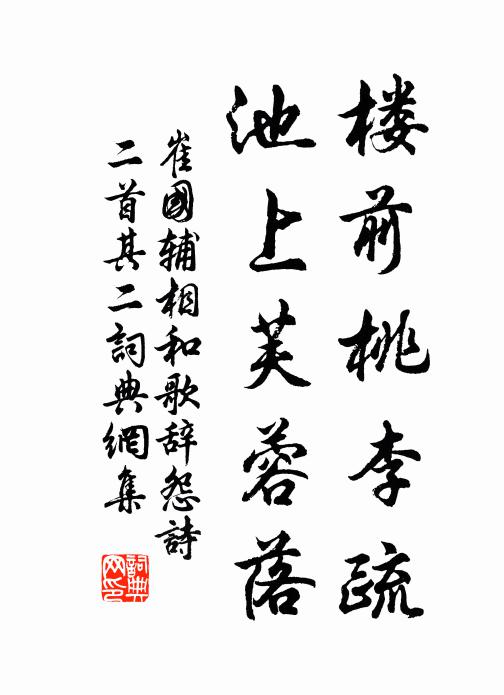 楼前桃李疏
池上芙蓉落
崔國辅相和歌辞怨詩
二首其二詞典網集
詞典
网印